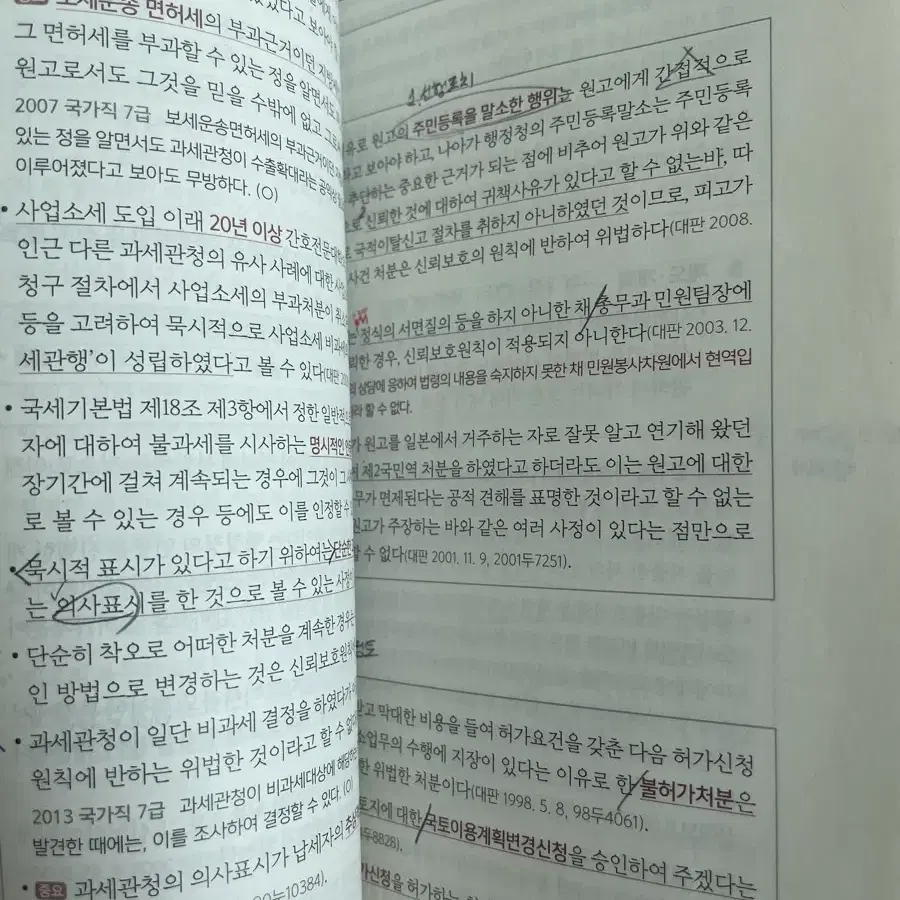 보세운송 면허세의 부과근거이던
그 면허세를 부과할 수 있는 정을 알면서도
원고로서도 그것을 믿을 수밖에 없고
2007 국가직 7급 보세운송면허세의 부과근거이던
있는 정을 알면서도 과세관청이 수출확대라는 공익상
이루어졌다고 보아도 무방하다. (O)
• 사업소세 도입 이래 20년 이상 간호전문대학
인근 다른 과세관청의 유사 사례에 대한
청구 절차에서 사업소세의 부과처분이
등을 고려하여 묵시적으로 사업소세 비과세
세관행'이 성립하였다고 볼 수 있다(대판
• 국세기본법 제18조 제3항에서 정한 일반적
자에 대하여 불과세를 시사하는 명시적인
장기간에 걸쳐 계속되는 경우에 그것이
로 볼 수 있는 경우 등에도 이를 인정할 수
• 묵시적 표시가 있다고 하기 위하여는 단순한
는 의사표시를 한 것으로 볼 수 있는 사정이
• 단순히 착오로 어떠한 처분을 계속한 경우는
인 방법으로 변경하는 것은 신뢰보호원칙
• 과세관청이 일단 비과세 결정을 하였다가
원칙에 반하는 위법한 것이라고 할 수 없다
2013 국가직 7급 과세관청이 비과세대상에 해당
발견한 때에는, 이를 조사하여 결정할 수 있다. (O)
• 중요 과세관청의 의사표시가 납세자의 추상
누10384).
유로 원고의 주민등록을 말소한 행위는 원고에게 간접적으로
라고 보아야 하고, 나아가 행정청의 주민등록말소는 주민등록
추단하는 중요한 근거가 되는 점에 비추어 원고가 위와 같은
로 신뢰한 것에 대하여 귀책사유가 있다고 할 수 없는바, 따
로 국적이탈신고 절차를 취하지 아니하였던 것이므로, 피고가
사건 처분은 신뢰보호의 원칙에 반하여 위법하다(대판 2008.
는 정식의 서면질의 등을 하지 아니한 채 총무과 민원팀장에
뢰한 경우, 신뢰보호원칙이 적용되지 아니한다(대판 2003. 12.
의 상담에 응하여 법령의 내용을 숙지하지 못한 채 민원봉사차원에서 현역입
라 할 수 없다.
가 원고를 일본에서 거주하는 자로 잘못 알고 연기해 왔던
제2국민역 처분을 하였다고 하더라도 이는 원고에 대한
무가 면제된다는 공적 견해를 표명한 것이라고 할 수 없는
원고가 주장하는 바와 같은 여러 사정이 있다는 점만으로
할 수 없다(대판 2001. 11. 9, 2001두7251).
받고 막대한 비용을 들여 허가요건을 갖춘 다음 허가신청
소업무의 수행에 지장이 있다는 이유로 한 불허가처분은
한 위법한 처분이다(대판 1998. 5. 8, 98두4061).
토지에 대한 국토이용계획변경신청을 승인하여 주겠다는
두8828).
가신청을 허가하는